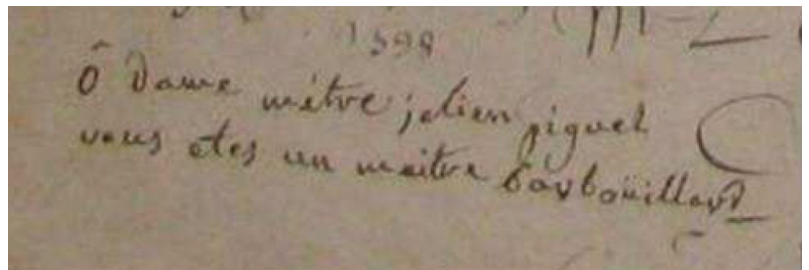 1598
Ô dame mètre jolien piguel
vous etes un maitre barboüillard